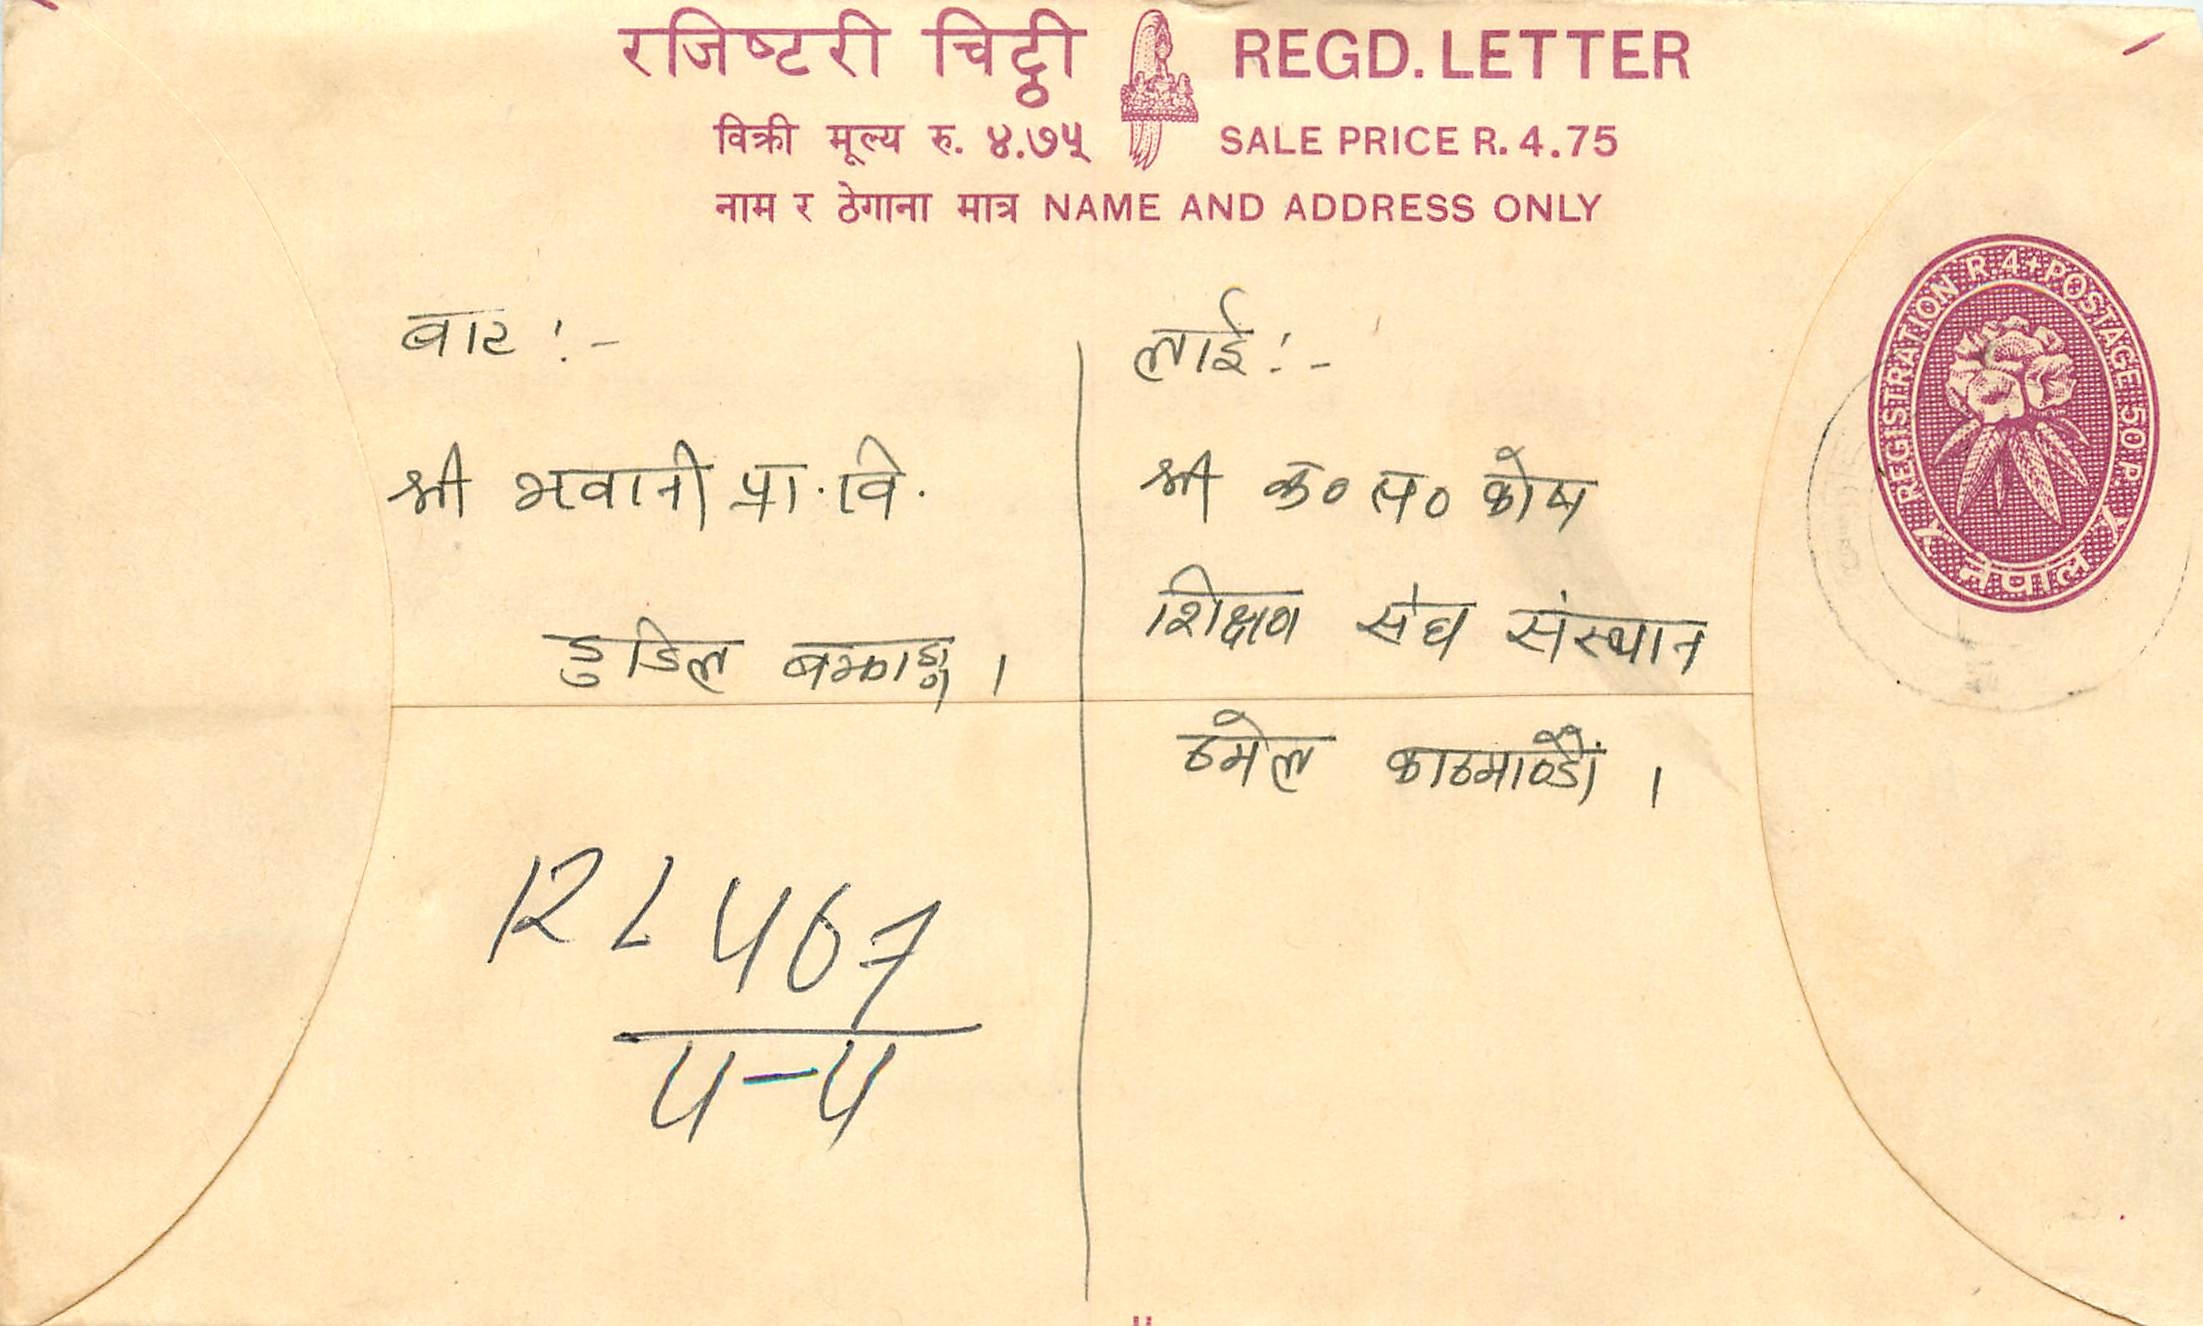 रजिष्टरी चिट्ठी REGD. LETTER
विक्री मूल्य रु. ४.७५ SALE PRICE R. 4.75
नाम र ठेगाना मात्र NAME AND ADDRESS ONLY
REGISTRATION R.4+POSTAGE 50 P.
नेपाल
बाट :-
श्री भवानी प्रा.वि.
डुडिल बझाङ्ग ।
लाई :-
श्री क० स० कोष
शिक्षण संघ संस्थान
ठमेल काठमाण्डौं ।
RL 467
५-५